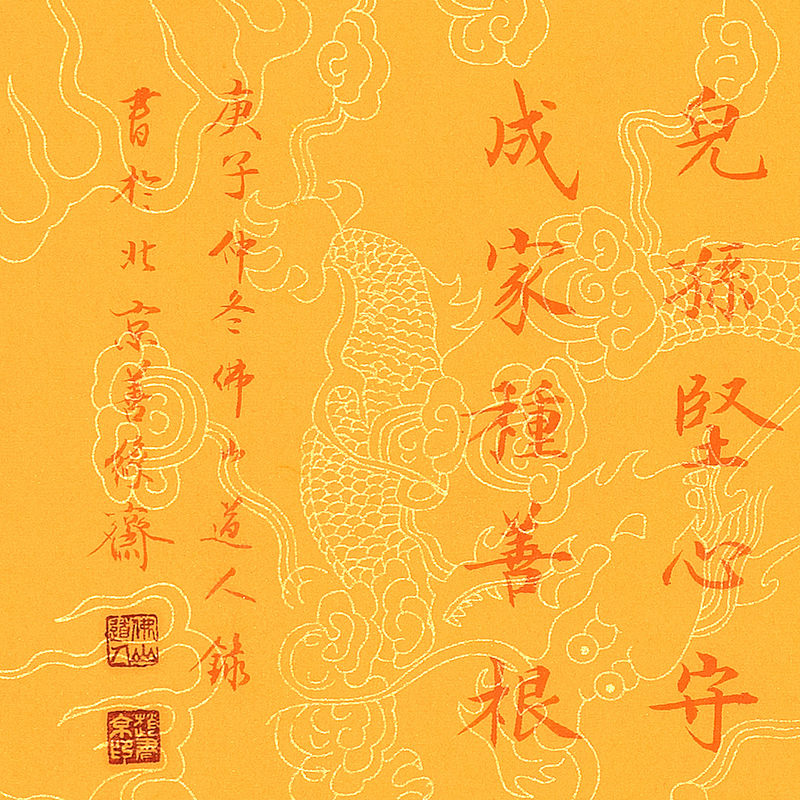 兒孫堅心守
成家種善根
庚子仲冬佛山道人録
書於北京善齋
佛山道人